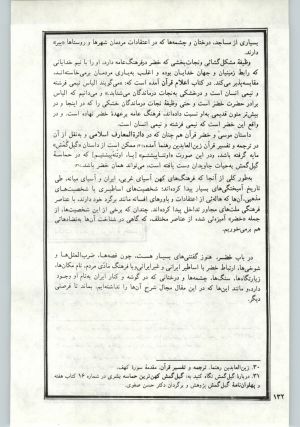 بسیاری از مساجد، درختان و چشمه‌ها که در اعتقادات مردمان شهرها و روستاها «پیر»
دارند.
وظیفهٔ مشکل‌گشائی و نجات‌بخشی که خضر در فرهنگ عامه دارد، او را با نیم خدایانی
که رابط زمینیان و جهان خدایان بوده و اغلب به یاری مردمان برمی‌خاسته‌اند،
مقایسه‌پذیر می‌کند. در کتاب اعلام قرآن آمده است که: «می‌گویند الیاس نیمی فرشته
و نیمی انسان است و درخشکی به‌نجات درماندگان می‌شتابد» و می‌دانیم که الیاس
برادر حضرت خضر است و حتی وظیفهٔ نجات درماندگان خشکی را که در اینجا و در
بیش‌تر متون قدیمی به‌او نسبت داده‌اند، فرهنگ عامه برعهدهٔ خضر نهاده است. و در
واقع این خضر است که نیمی فرشته و نیمی انسان است.
داستان موسی و خضر قرآن هم چنان که در دائرةالمعارف اسلامی و به‌نقل از آن
در ترجمه و تفسیر قرآن زین‌العابدین رهنما آمده،۳۰ ممکن است از داستان «گیل‌گمش»
مایه گرفته باشد، و در این صورت
گیل‌گمش به‌حیات جاویدان دست یافته است، می‌تواند همان خضر باشد.۳۱
به‌طور کلی از آنجا که فرهنگ‌های کهن آسیای غربی، ایران و آسیای میانه، طی
تاریخ آمیختگی‌های بسیار پیدا کرده‌اند؛ شخصیت‌های اساطیری با شخصیت‌های
مذهبی، آن‌ها که هاله‌ئی از اعتقادات و باورهای افسانه مانند برگرد خود دارند، با عناصر
فرهنگی ملت‌های مجاور تداخل پیدا کرده‌اند، چندان که برخی از این شخصیت‌ها، از
جمله «خضر» آمیزه‌ئی شده از عناصر مختلف، که گاهی در شناخت آن‌ها به‌تضادهائی
هم برمی‌خوریم.
در باب خضر، هنوز گفتنی‌های بسیار هست، چون قصه‌ها، ضرب‌المثل‌ها و
شوخی‌ها، ارتباط خضر با اساطیر ایرانی و غیرایرانی و با فرهنگ مادّی مردم، نام مکان‌ها،
زیارتگاه‌ها، سنگ‌ها، چشمه‌ها و درختانی که در گوشه و کنار ایران به‌نام او وجود
دارد، و مانند این‌ها که در این مقال مجال شرح آن‌ها را نداشته‌ایم. بماند تا فرصتی
دیگر.
۳۰. زین‌العابدین رهنما. ترجمه و تفسیر قرآن. مقدمهٔ سورهٔ کهف.
۳۱. دربارهٔ گیل‌گمش نگاه کنید به: گیل‌گمش کهن‌ترین حماسه بشری در شماره ۱۶ کتاب هفته
و پهلوان‌نامهٔ گیل‌گمش پژوهش و برگردان دکتر حسن صفوی.
۱۳۲